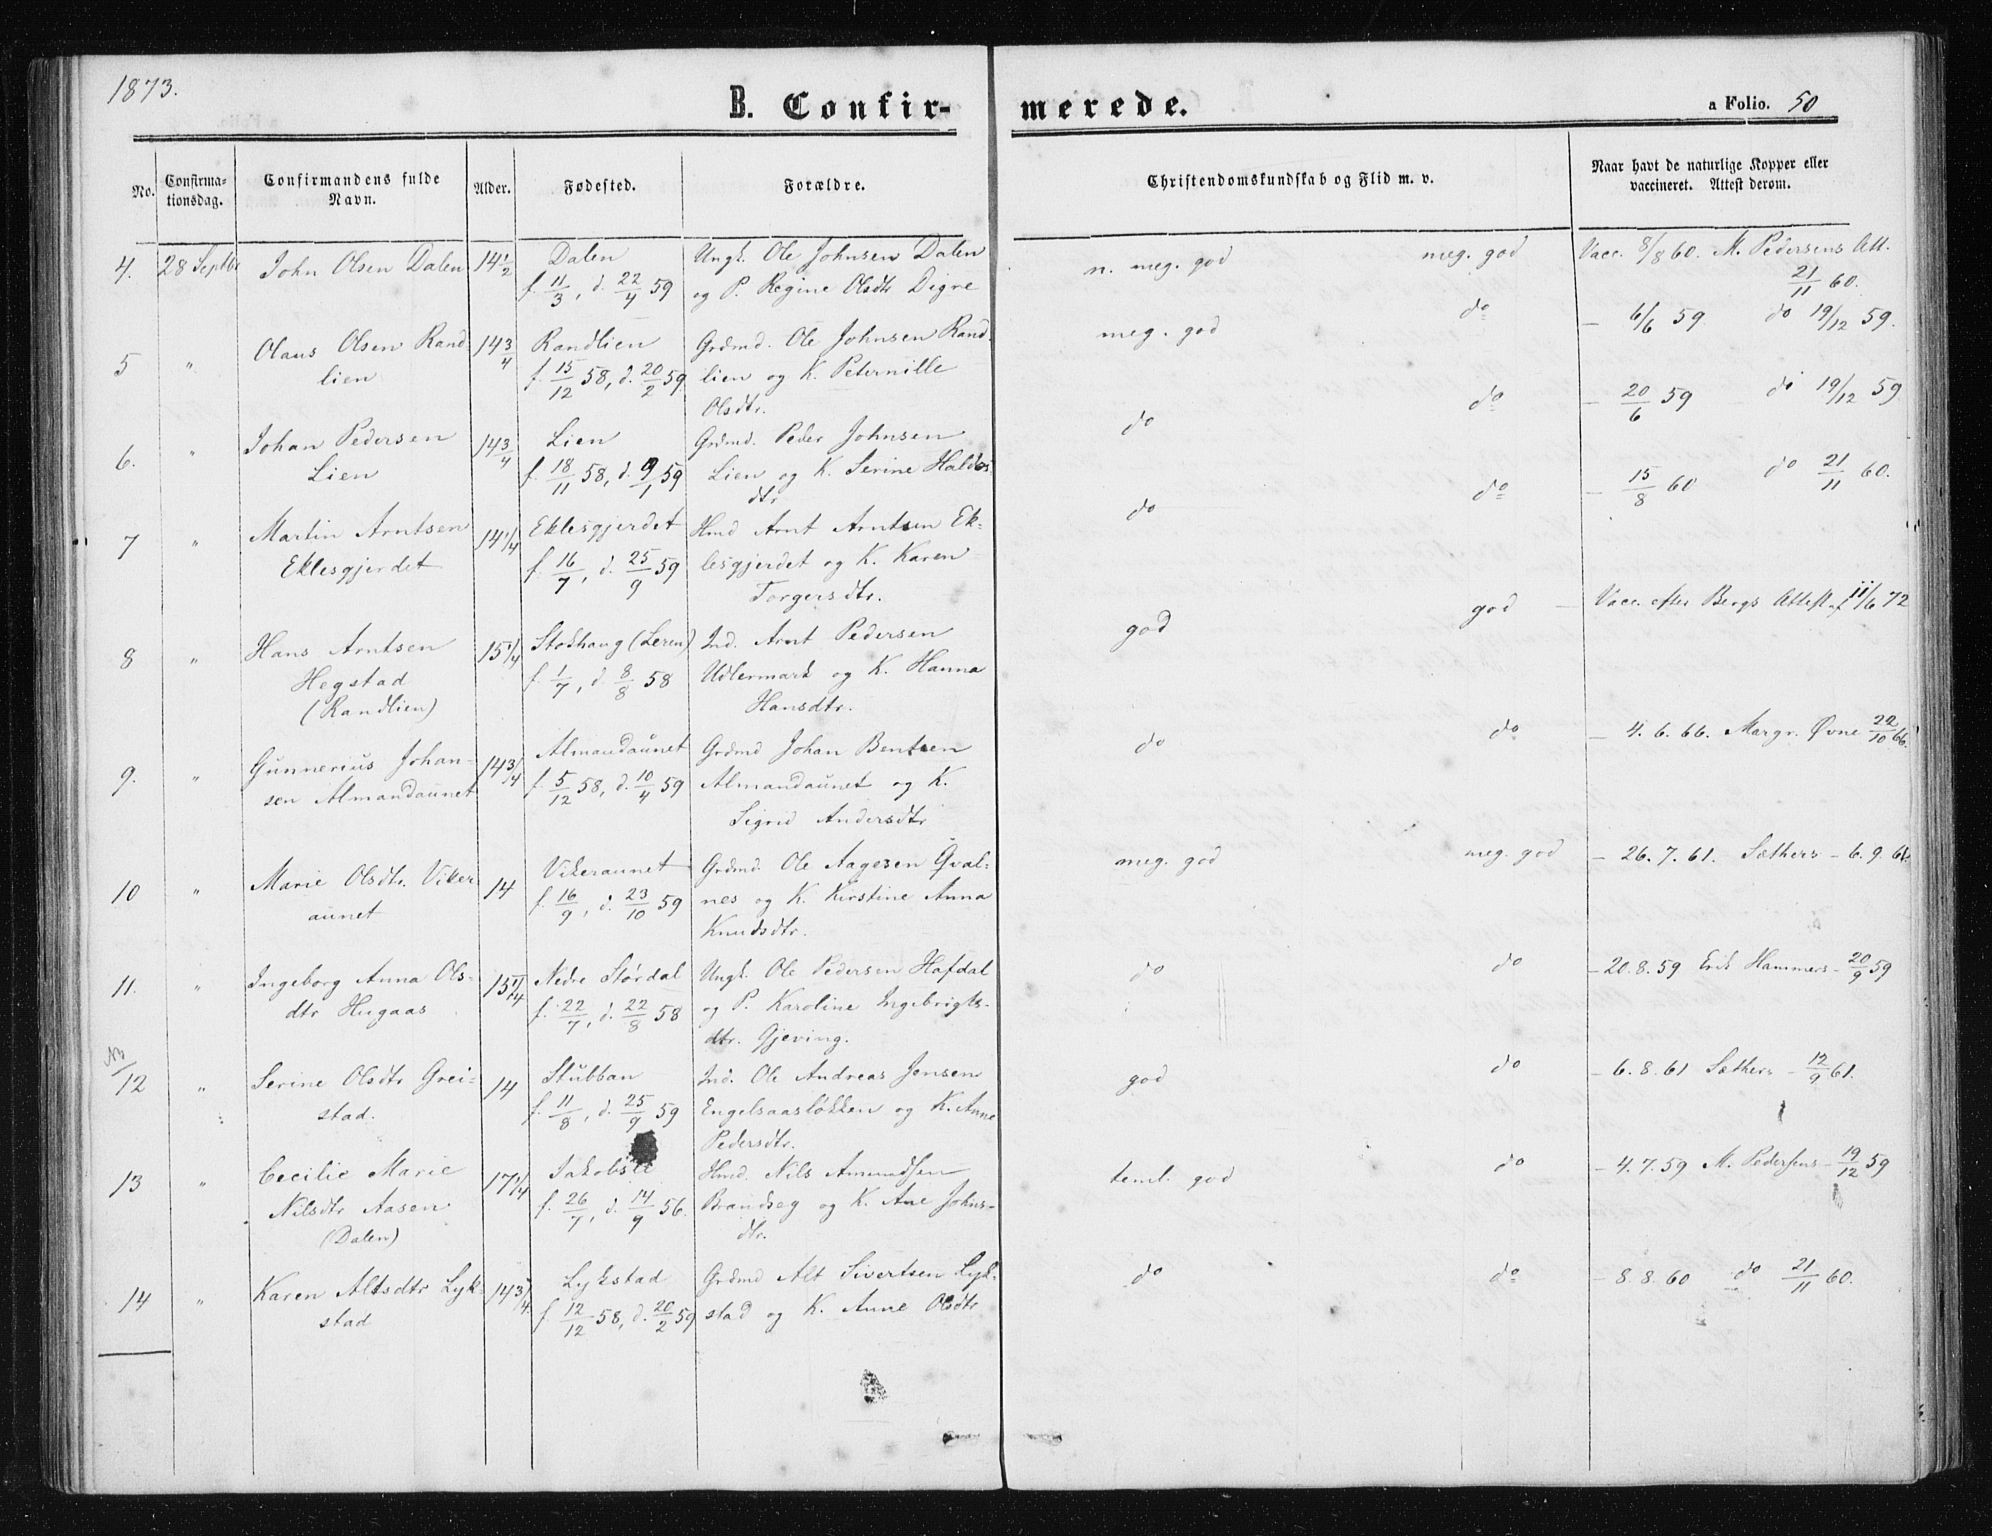 1873.
B. Confir-
merede.
a Folio. 50
No.
Confirma-
tionsdag.
Confirmandens fulde
Navn.
Alder.
Fødested.
Forældre.
Christendomskundskab og Flid m. v.
Naar havt de naturlige Kopper eller
vaccineret. Attest derom.
4. 28 Septbr John Olsen Dalen 14 1/2 Dalen Ungk. Ole Johnsen Dalen n. meg. god meg. god Vacc. 8/8 60. M. Pedersens Att.
f. 11/3, d. 22/4 59 og P. Regine Olsdtr Digre 21/11 60.
5 " Olaus Olsen Rand 14 3/4 Randlien Grdmd. Ole Johnsen Rand- meg. god do – 6/6 59 do 19/12 59.
lien f. 15/12 58, d. 20/2 59 lien og K. Peternille
Olsdtr.
6. " Johan Pedersen 14 3/4 Lien Grdmd. Peder Johnsen do do – 20/6 59 do 19/12 59
Lien f. 18/11 58, d. 9/1 59 Lien og K. Serine Haldos
dtr
7 " Martin Arntsen 14 1/4 Eklesgjerdet Hmd Arnt Arntsen Ek- do do – 15/8 60 do 21/11 60.
Eklesgjerdet f. 16/7, d. 25/9 59 lesgjerdet og K. Karen
Torgersdtr.
8 " Hans Arntsen 15 1/4 Stokhaug (Leren) Ind. Arnt Pedersen god god – Vacc. efter Bergs Attest af 11/6 72
Hegstad f. 1/7, d. 8/8 58 Udlermark og K. Hanna
(Randlien) Hansdtr.
9. " Gunnerius Johan- 14 3/4 Almandaunet Grdmd Johan Bentsen do do – 4. 6. 66. Margr. Øvne 22/10 66.
sen Almandaunet f. 5/12 58, d. 10/4 59 Almandaunet og K.
Sigrid Andersdtr
10 " Marie Olsdtr. Viker 14 Vikeraunet Grdmd. Ole Aagesen Qval- meg. god meg. god – 26. 7. 61. Sæthers – 6. 9. 61.
aunet f. 16/9, d. 23/10 59 nes og K. Kirstine Anna
Knudsdtr.
11. " Ingeborg Anna Ols- 15 1/4 Nedre Stördal Ungk. Ole Pedersen Hafdal do do – 20. 8. 59 Erik Hammers – 20/9 59
dtr Hugaas f. 22/7, d. 22/8 58 og P. Karoline Ingebrigts-
dtr. Gjeving.
12 " Serine Olsdtr Grei- 14 Stubban Ind. Ole Andreas Jensen god do – 6. 8. 61 Sæthers – 12/9 61.
stad. f. 11/8, d. 25/9 59 Engelsaasløkken og K. Anne
Pedersdtr.
13 " Cecilie Marie 17 1/4 Jakobsli Hmd. Nils Amundsen teml. god do – 4. 7. 59 M. Pedersens – 19/12 59
Nilsdtr Aasen f. 26/7, d. 14/9 56. Brandseg og K. Ane Johns-
(Dalen) dtr.
14 " Karen Altsdtr Lyk- 14 3/4 Lykstad Grdmd Alt Sivertsen Lyk- do do – 8. 8. 60 do 21/11 60.
stad f. 12/12 58, d. 20/2 59 stad og K. Anne Olsdtr